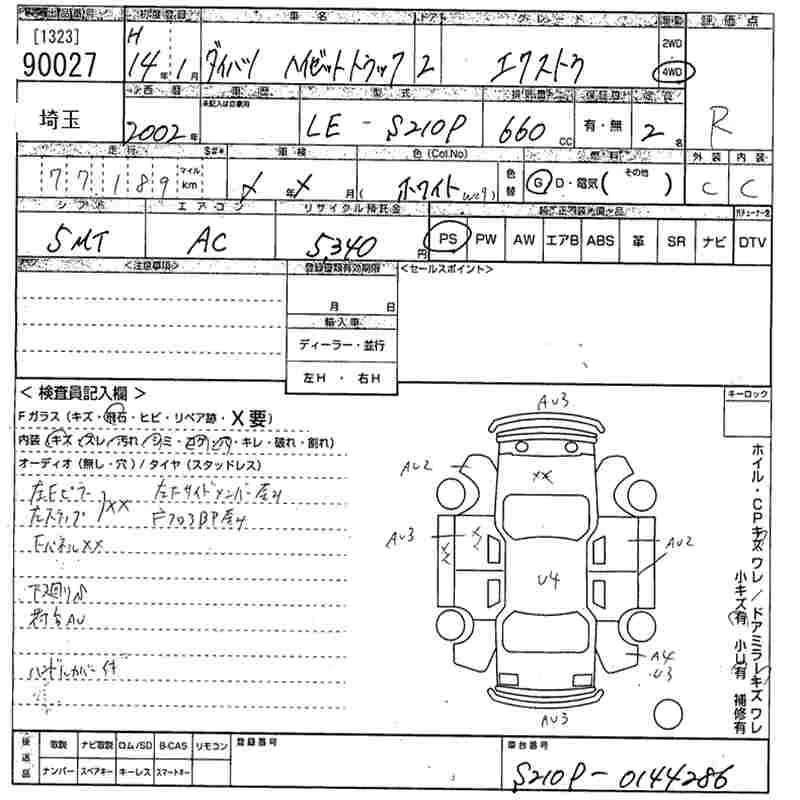 出品番号 初度登録 車名 ドア グレード 駆動 評価点
[1323] H 2WD
90027 14年1月 ダイハツ ハイゼットトラック 2 エクストラ 4WD
埼玉 西暦 車歴 型式 排気量 保証書 定員 R
未記入は自家用
2002年 LE-S210P 660cc 有・無 2名
走行 車検 色(Col.No) 燃料 外装 内装
77189 マイル km メ年メ月( ホワイト(W09) 色替 G D・電気( その他 ) C C
シフト エアコン リサイクル預託金 純正装備品
5MT AC 5,340円 PS PW AW エアB ABS 革 SR ナビ DTV
<注意事項> 登録書類有効期限 <セールスポイント>
月 日
輸入車
ディーラー・並行
左H・右H
<検査員記入欄> キーロック
Fガラス(キズ・飛石・ヒビ・リペア跡・X要)
内装(キズ・スレ/汚れ/シミ・コゲ・穴・キレ・破れ・割れ)
オーディオ(無し・穴)/タイヤ(スタッドレス)
左Fピラー 左Fサイドメンバー歪み
左ステップ XX
FパネルXX
下回りS
荷台AU
ハンドルカバー付
AU3
AU2
XX
AU3
XX
AU2
U4
A4
U3
AU3
ホイル・CPキズワレ/ドアミラーキズワレ
小キズ有 小U有 補修有
後送品 取説 ナビ取説 ロム/SD B-CAS リモコン 登録番号 車台番号
ナンバー スペアキー キーレス スマートキー S210P-0144286